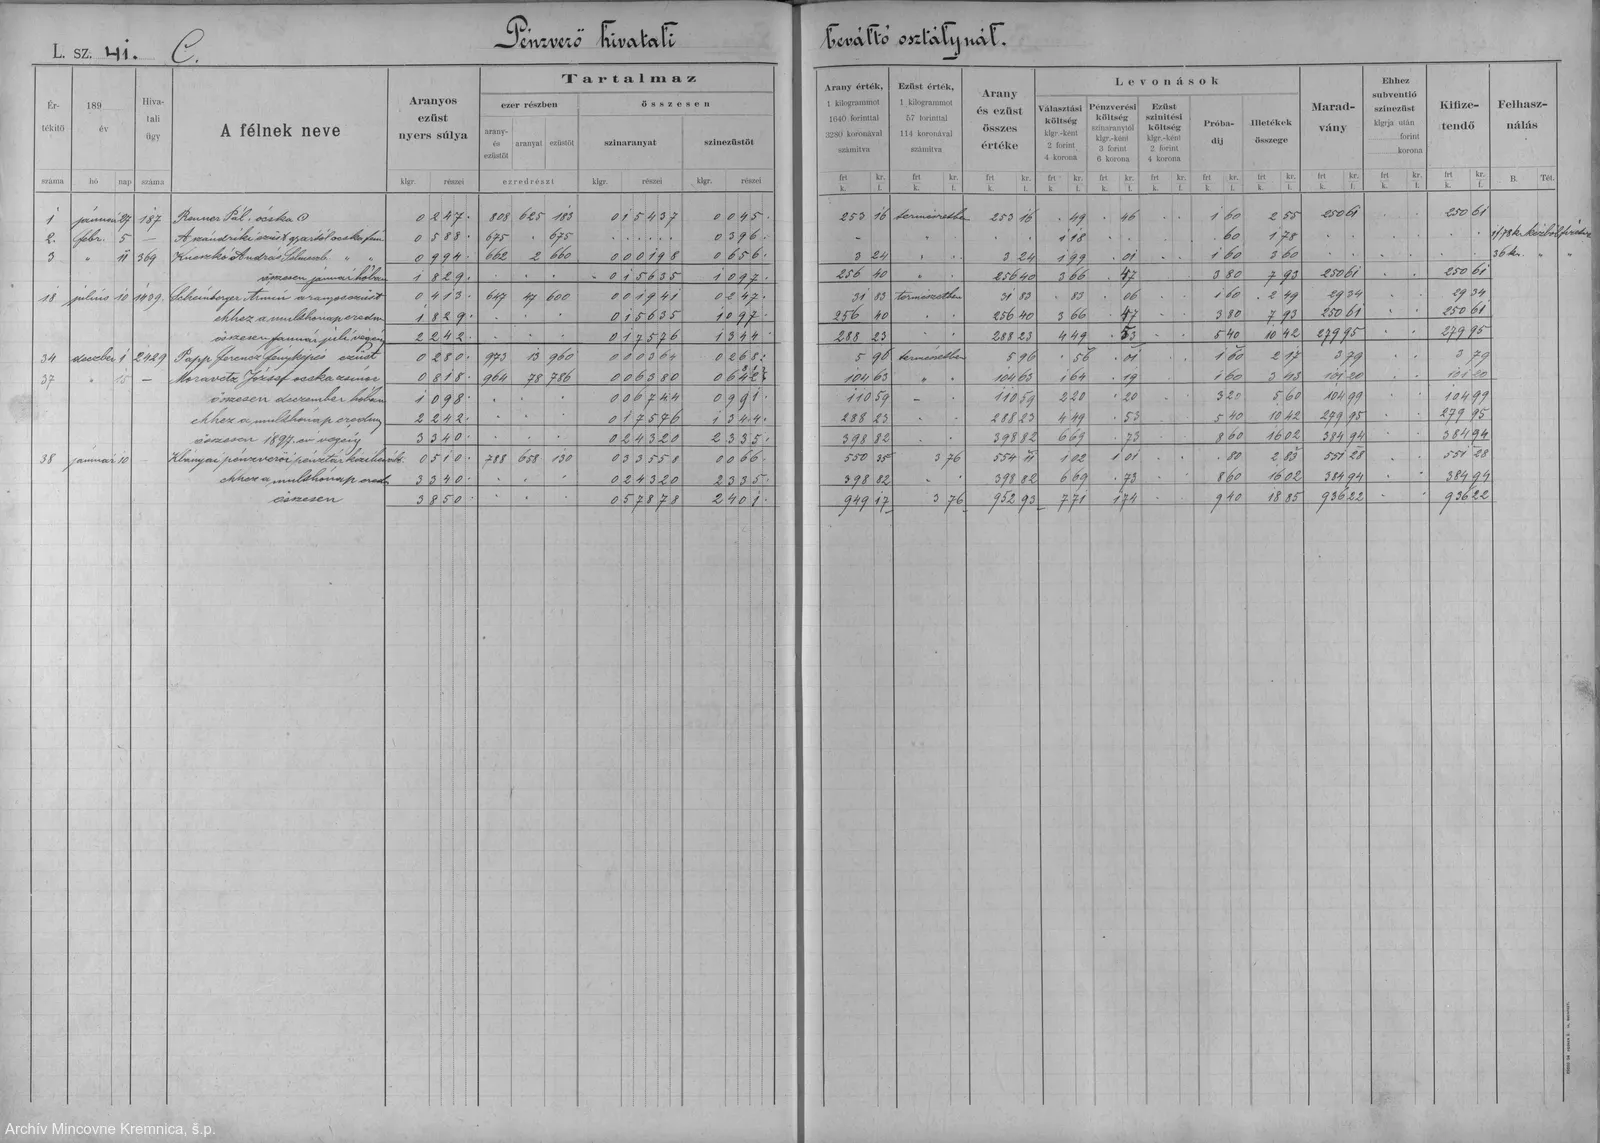 L. sz. 41. C. Pénzverő hivatali beváltó osztálynál.
Értékítő száma
189 év
hó nap
Hivatali ügy száma
A félnek neve
Aranyos ezüst nyers súlya
klgr. részei
Tartalmaz
ezer részben
arany- és ezüstöt aranyat ezüstöt
ezredrészt
összesen
szinaranyat szinezüstöt
klgr. részei klgr. részei
Arany érték, 1 kilogrammot 1640 forinttal 3280 koronával számítva
frt k. kr. f.
Ezüst érték, 1 kilogrammot 57 forinttal 114 koronával számítva
frt k. kr. f.
Arany és ezüst összes értéke
frt k. kr. f.
Levonások
Választási költség klgr.-ként 2 forint 4 korona
Pénzverési költség színaranytól klgr.-ként 3 forint 6 korona
Ezüst szinítési költség klgr.-ként 2 forint 4 korona
Próbadij
Illetékek összege
Maradvány
Ehhez subventió színezüst klgrja után forint korona
Kifizetendő
Felhasználás
B. Tét.
1 január 27 187 Renner Pál, ócska 0 247 808 625 183 0 15437 0 045 253 16 természetben 253 16 49 46 1 60 2 55 250 61 250 61
2. febr. 5 — 0 588 675 675 0 396 1 18 60 1 78
3 " 11 369 András Selmeczb " " 0 994 662 2 660 0 00198 0 656 3 24 3 24 1 99 01 1 60 3 60 36 kr. " "
összesen január hóban 1 829 0 15635 1 097 256 40 256 40 3 66 47 3 80 7 93 250 61 250 61
18 július 10 1439 Armin aranyosezüst 0 413 647 47 600 0 01941 0 247 31 83 természetben 31 83 83 06 1 60 2 49 29 34 29 34
ehhez a multhónap eredm 1 829 0 15635 1 097 256 40 256 40 3 66 47 3 80 7 93 250 61 250 61
összesen január júli végéig 2 242 0 17576 1 344 288 23 288 23 4 49 53 5 40 10 42 279 95 279 95
34 deczber 1 2429 Papp Ferencz fényképés ezüst 0 280 973 13 960 0 00364 0 268 5 96 természetben 5 96 56 01 1 60 2 17 3 79 3 79
37 " 15 — Moravetz József ócska 0 818 964 78 786 0 06380 104 63 " 104 63 1 64 19 1 60 3 43 101 20 101 20
összesen deczember hóban 1 098 0 06744 0 991 110 59 — 110 59 2 20 20 3 20 5 60 104 99 104 99
ehhez a multhónap eredm 2 242 0 17576 1 344 288 23 288 23 4 49 53 5 40 10 42 279 95 279 95
összesen 1897. év végéig 3 340 0 24320 2 335 398 82 398 82 6 69 73 8 60 16 02 384 94 384 94
38 január 10 — pénzverői pénztár 0 510 788 658 130 0 33558 0 066 550 35 3 76 554 11 1 02 1 01 80 2 83 551 28 551 28
ehhez a multhónap eredm 3 340 0 24320 2 335 398 82 398 82 6 69 73 8 60 16 02 384 94 384 94
összesen 3 850 0 57878 2 401 949 17 3 76 952 93 7 71 1 74 9 40 18 85 936 22 936 22
Archív Mincovne Kremnica, š.p.